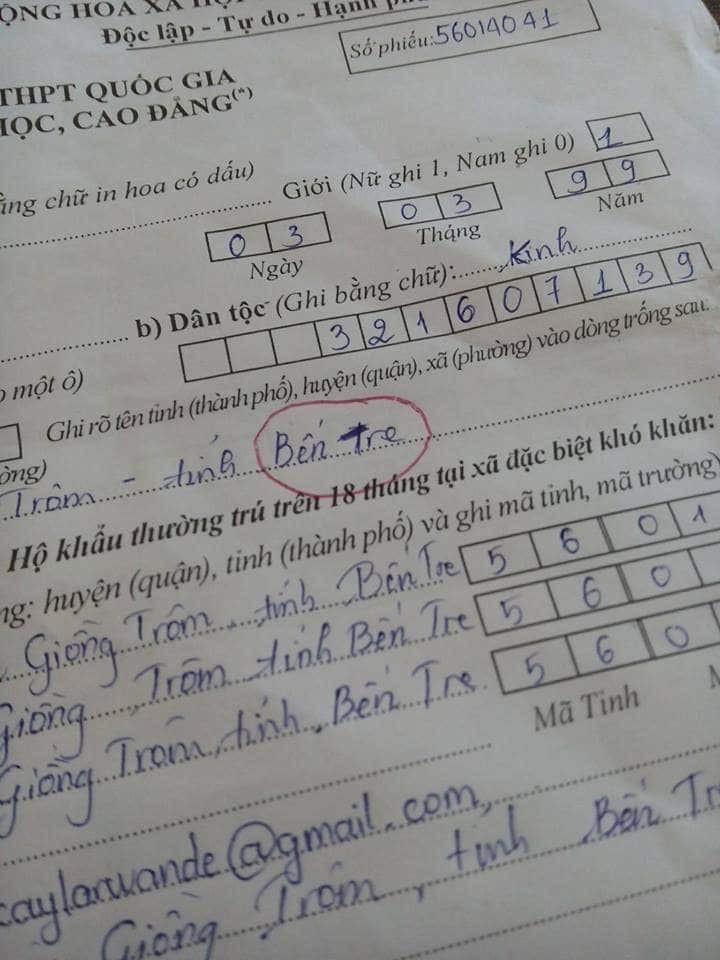 ỘNG HÒA XÃ
Độc lập - Tự do - Hạnh
Số phiếu: 56014041
THPT QUỐC GIA
HỌC, CAO ĐẲNG(*)
ằng chữ in hoa có dấu)
Giới (Nữ ghi 1, Nam ghi 0) 1
0 3 0 3 9 9
Ngày Tháng Năm
b) Dân tộc (Ghi bằng chữ): Kinh
3 2 1 6 0 7 1 3 9
một ô)
Ghi rõ tên tỉnh (thành phố), huyện (quận), xã (phường) vào dòng trống sau.
òng)
Trôm - tỉnh Bến Tre
Hộ khẩu thường trú trên 18 tháng tại xã đặc biệt khó khăn:
ng: huyện (quận), tỉnh (thành phố) và ghi mã tỉnh, mã trường)
Giồng Trôm, tỉnh Bến Tre 5 6 0 1
Giồng Trôm tỉnh Bến Tre 5 6 0
Giồng Trôm, tỉnh Bến Tre 5 6 0
Mã Tỉnh
caylarwande@gmail.com,
Giồng Trôm, tỉnh Bến Tr